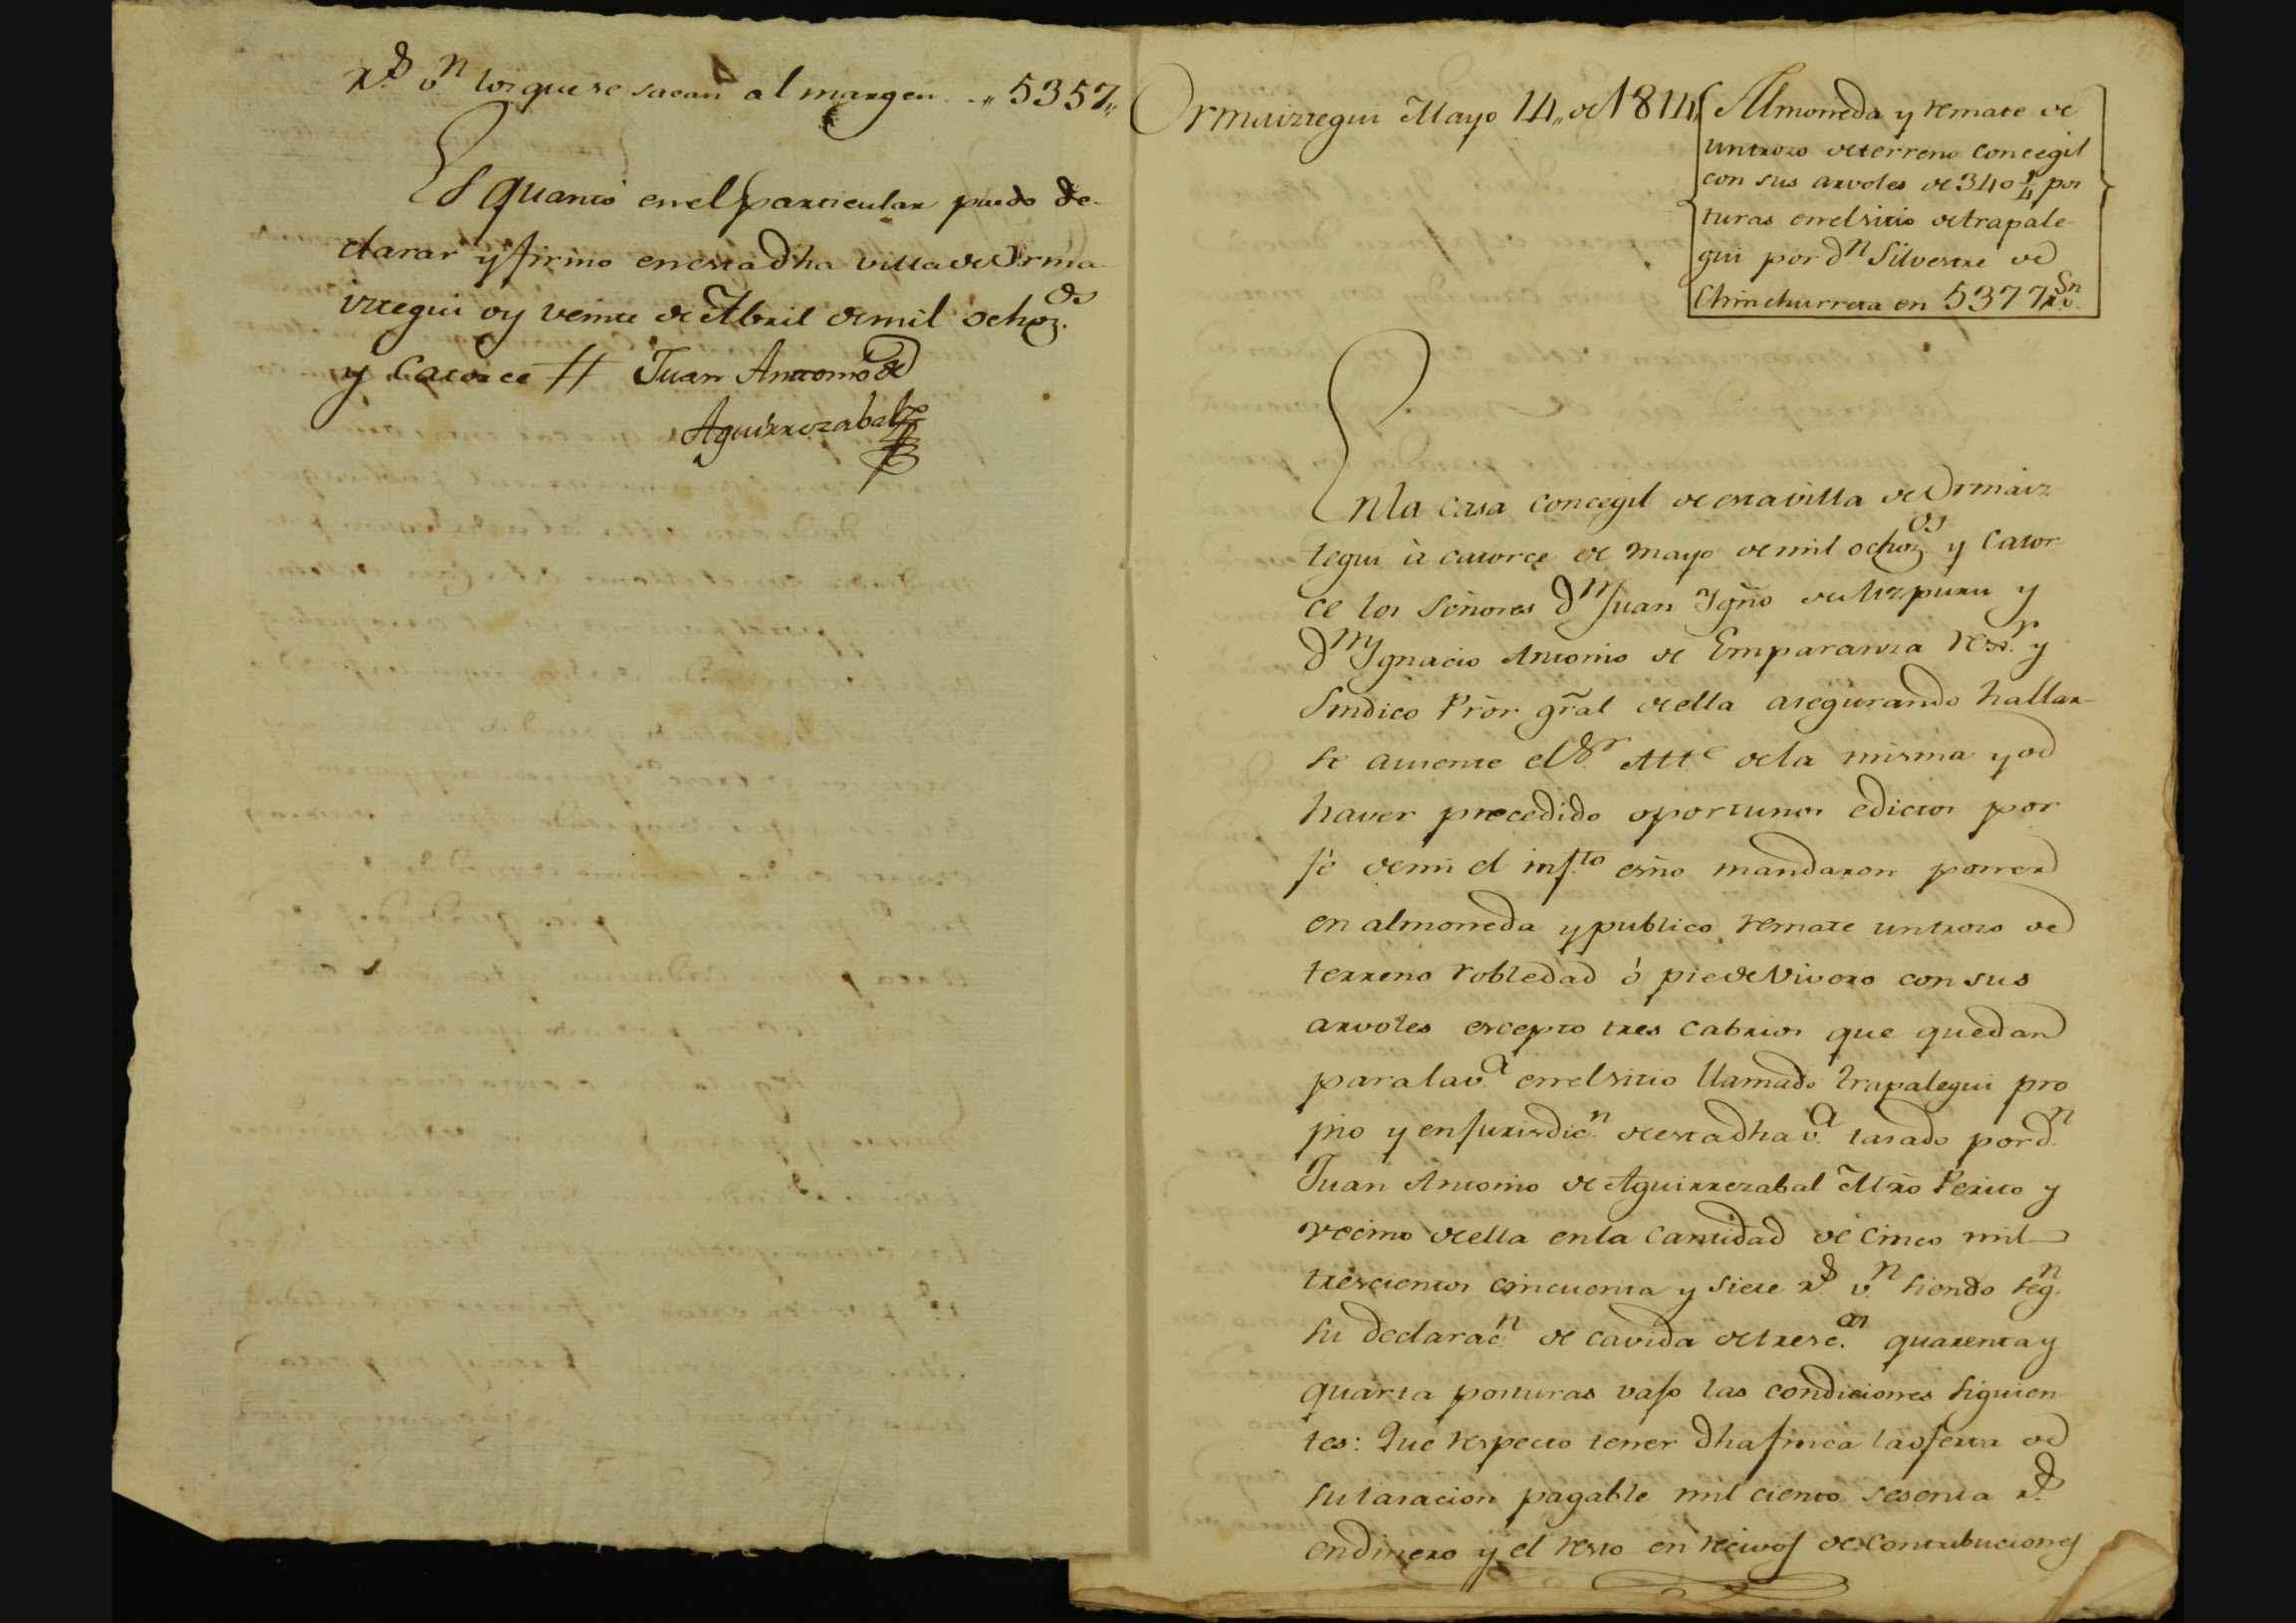 r.s v.n los que se sacan al margen. .,, 5357,,
Es quanto en el particular puedo de-
clarar y firmo en esta dha villa de Orma
iztegui oy veinte de Abril de mil ochoz.os
y catorce // Juan Antonio de
Aguirrezabal
Ormaiztegui Mayo 14,, de 1814,,
Almoneda y remate de
un trozo de terreno concegil
con sus arvoles de 340 1/4 pos
turas en el sitio de trapale-
gui por d.n Silvestre de
Chinchurreta en 5377 r.s v.n
En la casa concegil de esta villa de Ormaiz
tegui à catorce de Mayo de mil ochoz.os y cator
ce los Señores d.n Juan Ygño de Aizpuru y
d.n Ygnacio Antonio de Emparanza rex.r y
Sindico Prõr gr̃al de ella asegurando hallar-
se ausente el S.r Alc.e de la misma y de
haver precedido oportunos edictos por
fè de mi el inf.to esño mandaron poner
en almoneda y publico remate un trozo de
terreno robledad ò pie de Vivero con sus
arvoles excepto tres cabrios que quedan
para la v.a en el sitio llamado trapalegui pro
pio y en jurisdic.n de esta dha v.a tasado por d.n
Juan Antonio de Aguirrezabal Mr̃o Perito y
vecino de ella en la cantidad de cinco mil
trescientos cincuenta y siete r.s v.n siendo seg.n
su declarac.n de cavida de tresc.os quarenta y
quarta posturas vajo las condiciones siguien
tes: Que respecto tener dha finca la oferta de
su tasacion pagable mil ciento sesenta r.s
en dinero y el resto en recivos de contribuciones